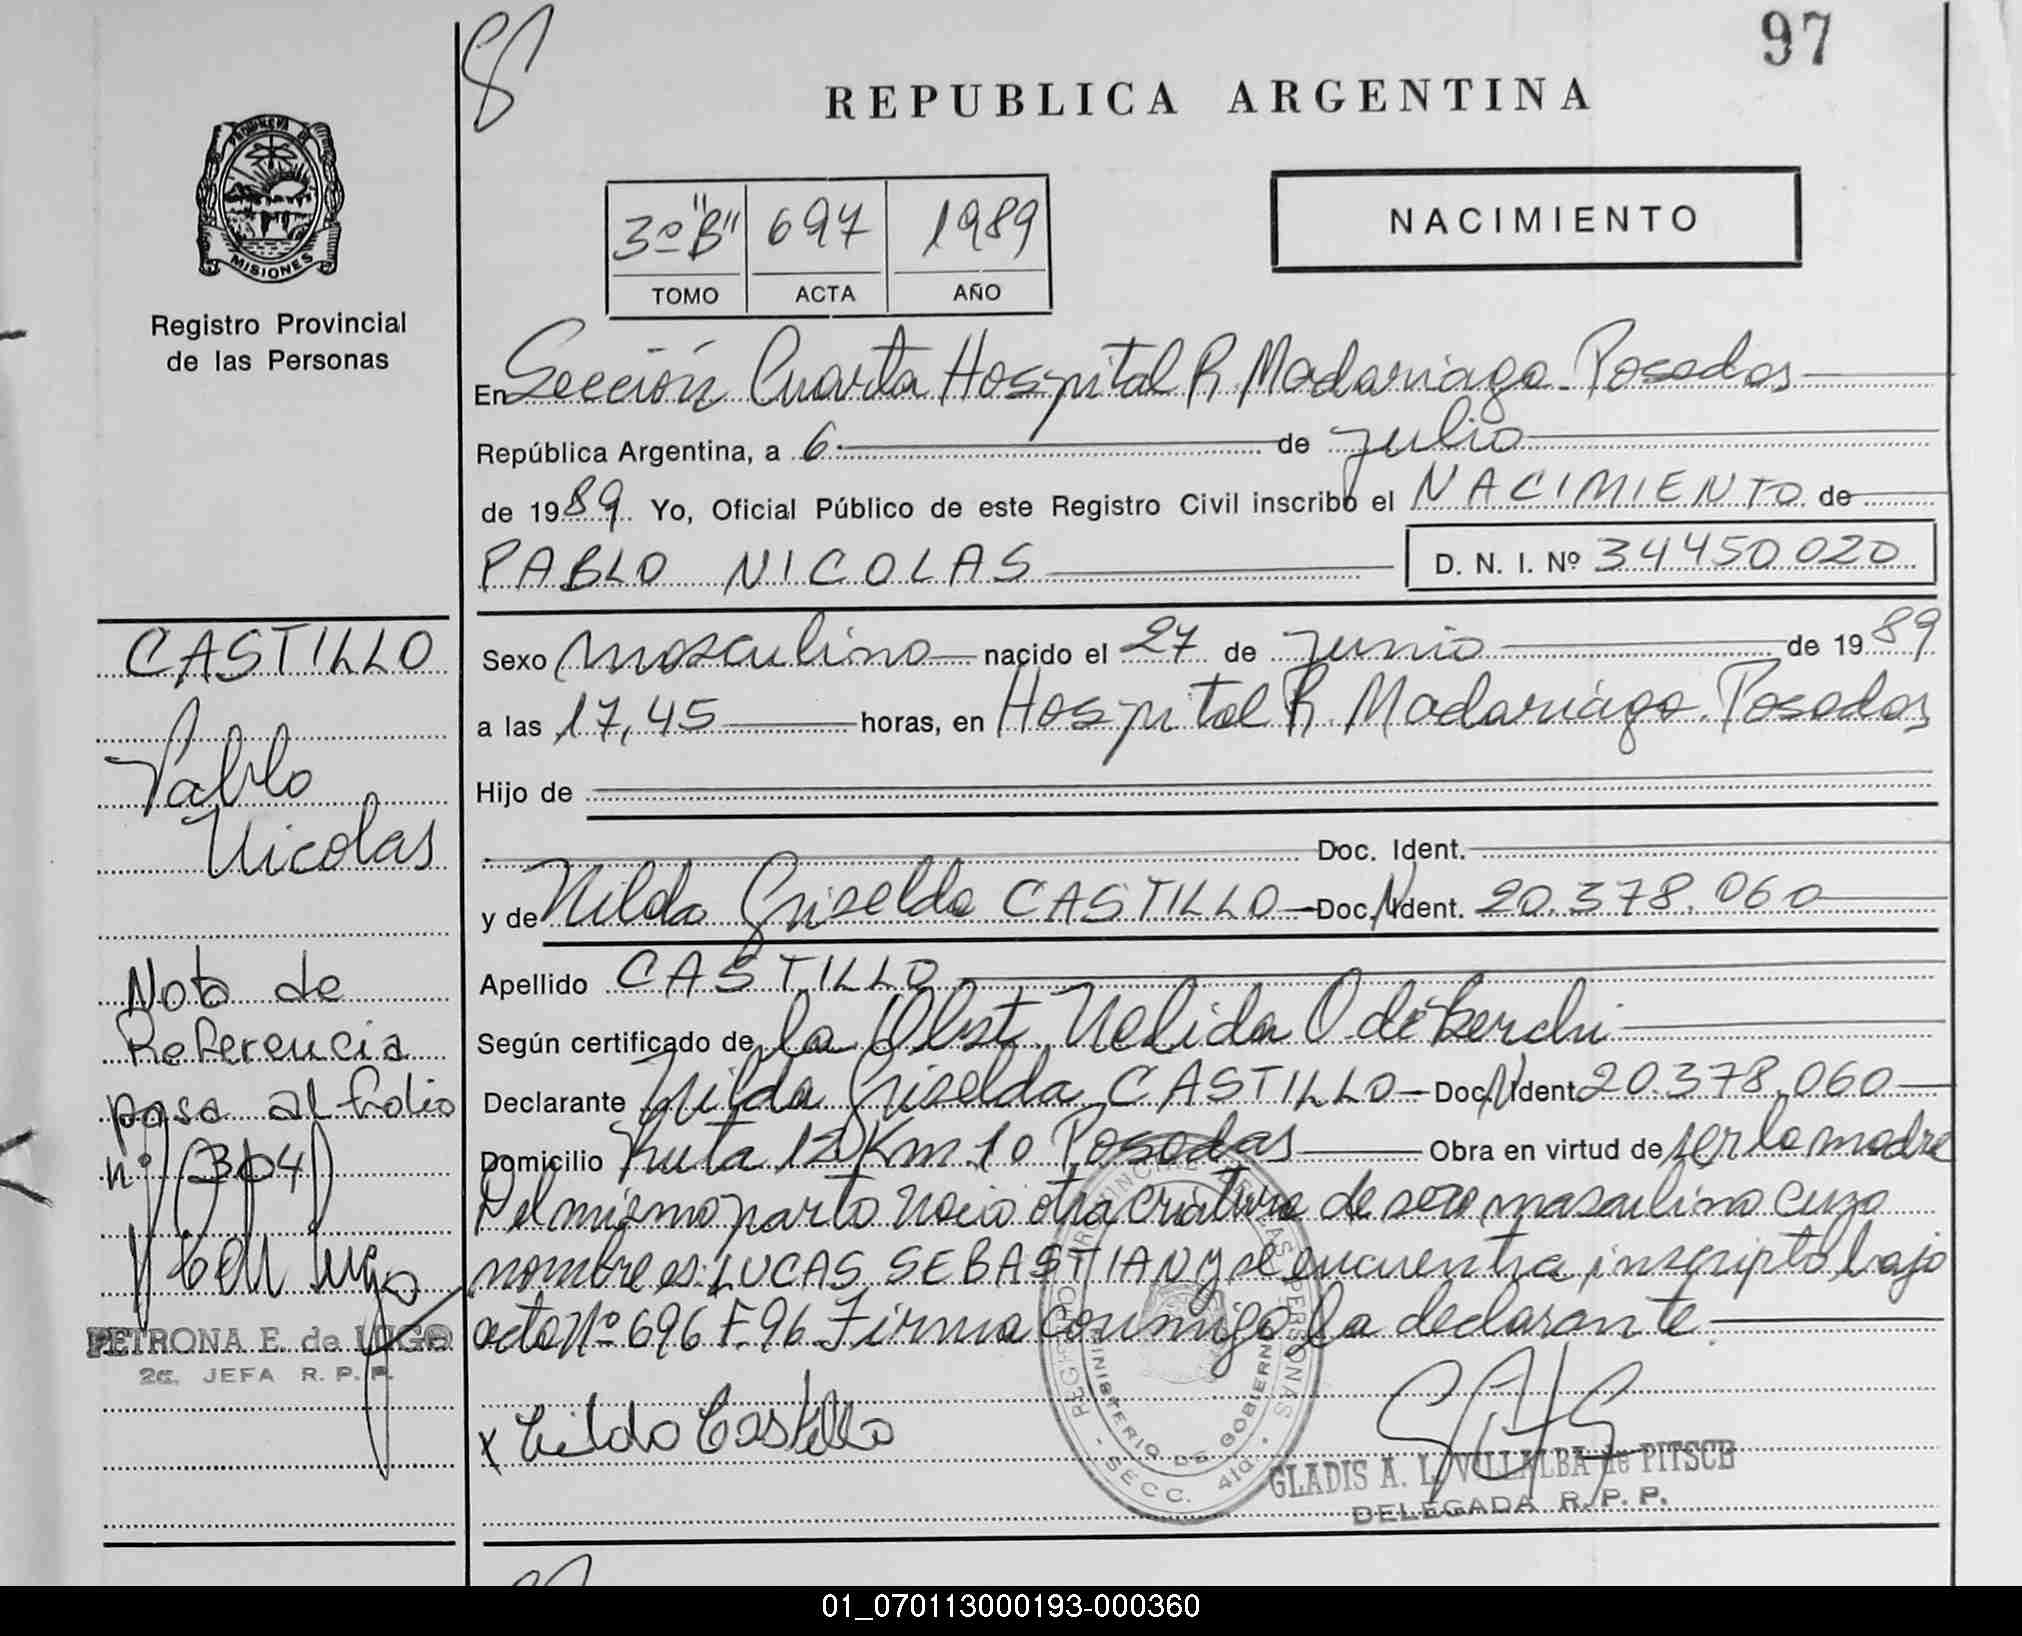 97
REPUBLICA ARGENTINA
PROVINCIA DE
MISIONES
Registro Provincial
de las Personas
3º "B" 697 1989
TOMO ACTA AÑO
NACIMIENTO
En Sección Cuarta Hospital R. Madariaga - Posadas
República Argentina, a 6 de julio
de 1989 Yo, Oficial Público de este Registro Civil inscribo el NACIMIENTO de
PABLO NICOLAS D. N. I. Nº 34450020
Sexo masculino nacido el 27 de junio de 1989
a las 17,45 horas, en Hospital R. Madariaga. Posadas
Hijo de
Doc. Ident.
y de Nilda Griselda CASTILLO Doc. Ident. 20.378.060
Apellido CASTILLO
Según certificado de la Obst. Nelida O de Kerchi
Declarante Nilda Griselda CASTILLO Doc. Ident 20.378.060
Domicilio Ruta 12 Km 10 Posadas Obra en virtud de ser la madre
Del mismo parto nacio otra criatura de sexo masculino cuyo
nombre es: LUCAS SEBASTIAN y se encuentra inscripto bajo
acta Nº 696 F. 96. Firma conmigo la declarante.
x Nilda Castillo
GLADIS A. L. VILLALBA de PITSCH
DELEGADA R. P. P.
REGISTRO PROVINCIAL DE LAS PERSONAS
MINISTERIO DE GOBIERNO
- SECC. 4ta. -
CASTILLO
Pablo
Nicolas
Nota de
Referencia
pasa al folio
nº 304
PETRONA E. de LUGO
2a. JEFA R. P. P.
01_070113000193-000360